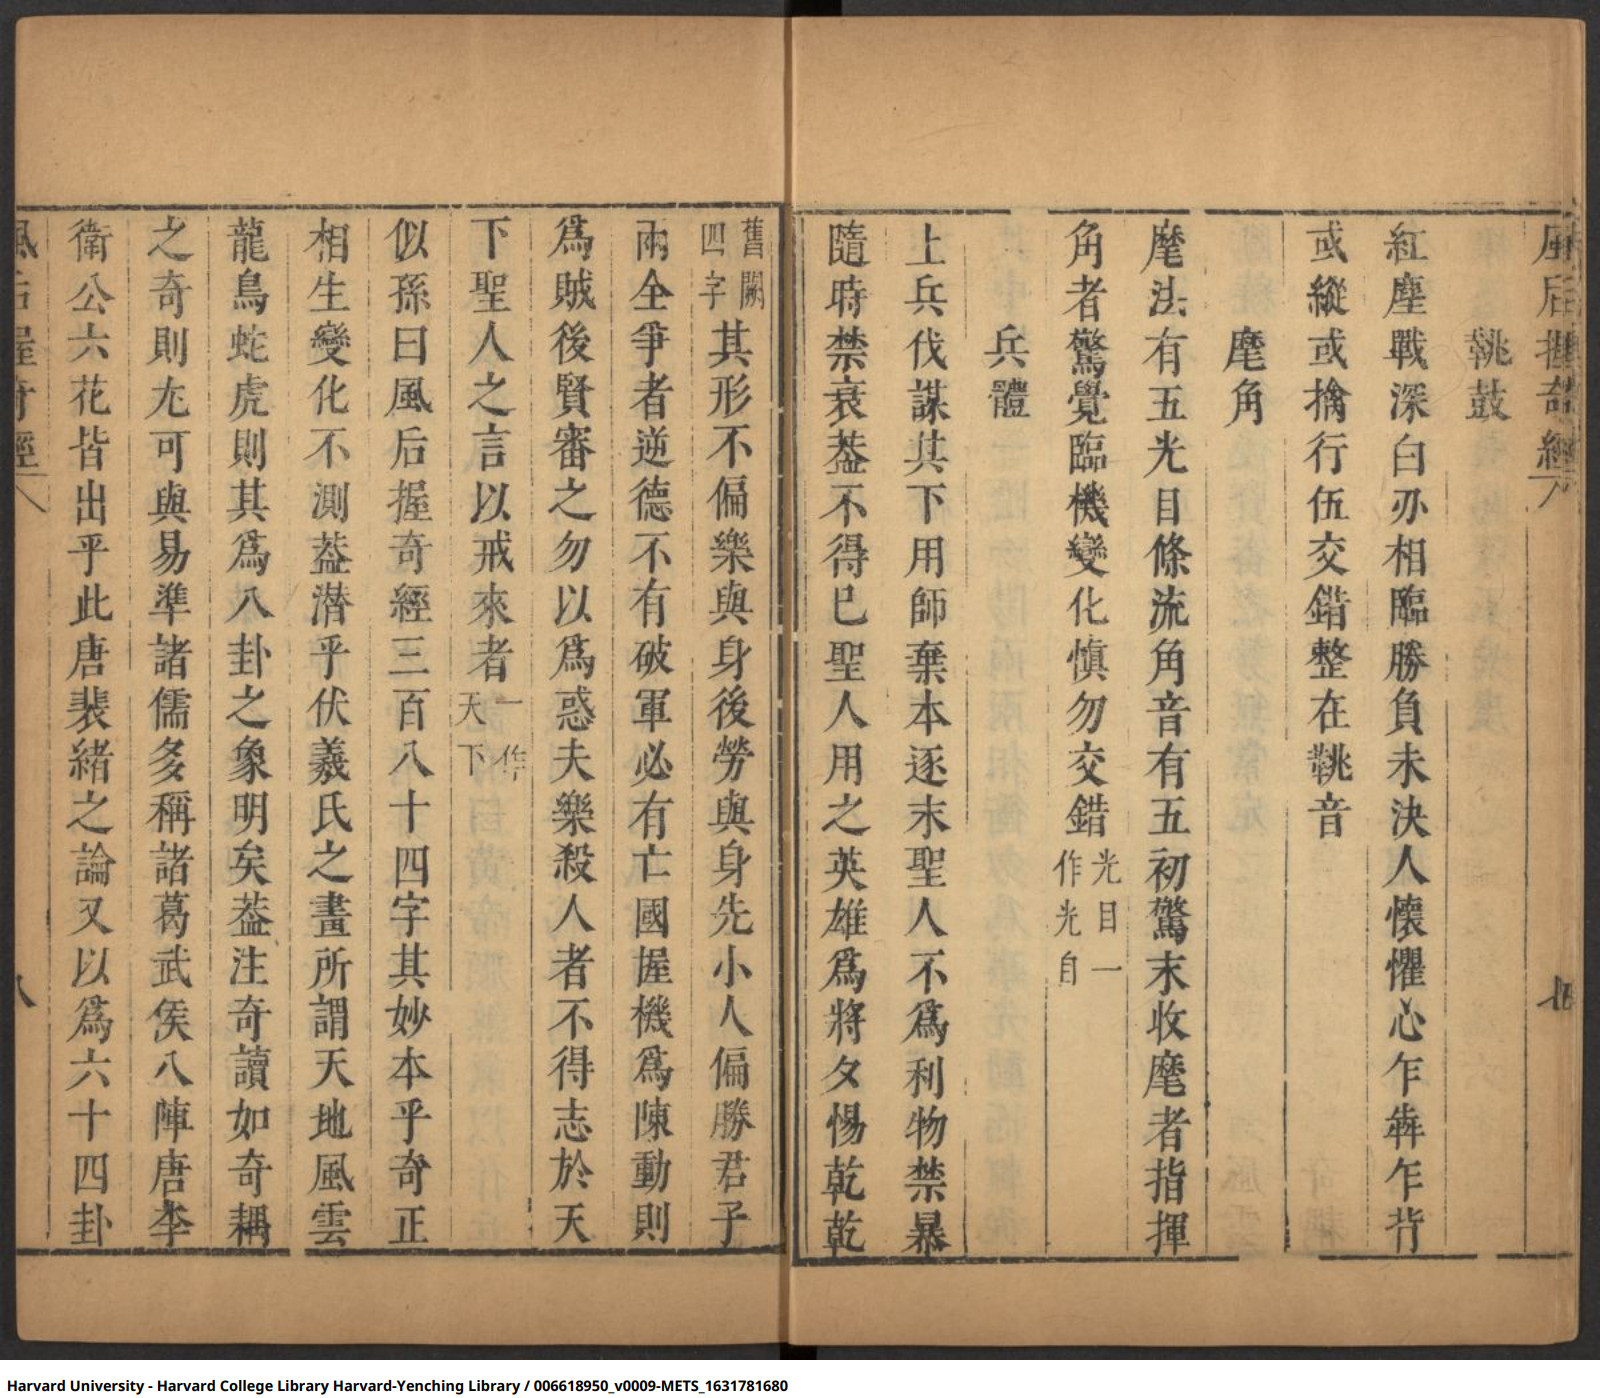 風后握奇經
七
鞉鼓
紅塵戰深白刃相臨勝負未決人懷懼心乍犇乍背
或縱或擒行伍交錯整在鞉音
麾角
麾法有五光目條流角音有五初驚末收麾者指揮
角者驚覺臨機變化慎勿交錯光目一作光自
兵體
上兵伐謀其下用師棄本逐末聖人不為利物禁暴
隨時禁衰葢不得已聖人用之英雄為將夕惕乾乾
舊闕四字其形不偏樂與身後勞與身先小人偏勝君子
兩全爭者逆德不有破軍必有亡國握機為陳動則
為賊後賢審之勿以為惑夫樂殺人者不得志於天
下聖人之言以戒來者一作天下
似孫曰風后握奇經三百八十四字其妙本乎奇正
相生變化不測葢潛乎伏羲氏之畫所謂天地風雲
龍鳥蛇虎則其為八卦之象明矣葢注奇讀如奇耦
之奇則尢可與易準諸儒多稱諸葛武侯八陣唐李
衛公六花皆出乎此唐裴緒之論又以為六十四卦
風后握奇經
八
Harvard University - Harvard College Library Harvard-Yenching Library / 006618950_v0009-METS_1631781680